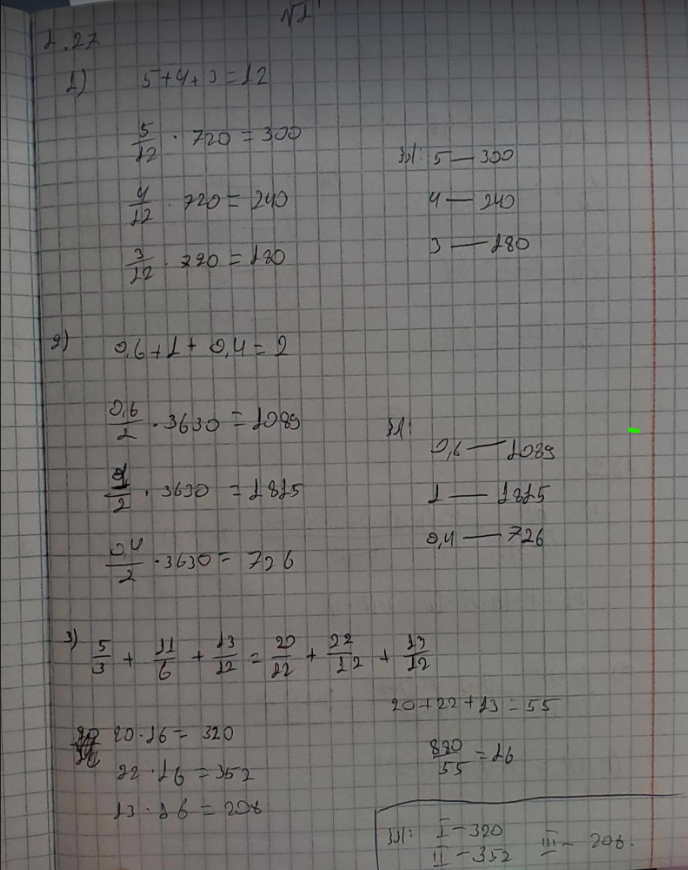 №1
1.27
1) 5+4+3=12
5/12 · 720 = 300
4/12 · 720 = 240
3/12 · 720 = 180
5 — 300
4 — 240
3 — 180
2) 0,6+1+0,4=2
0,6/2 · 3630 = 1089
1/2 · 3630 = 1815
0,4/2 · 3630 = 726
0,6 — 1089
1 — 1815
0,4 — 726
3) 5/3 + 11/6 + 13/12 = 20/12 + 22/12 + 13/12
20+22+13=55
880/55 = 16
20·16= 320
22·16=352
13·16=208
I – 320
II – 352 III – 208.